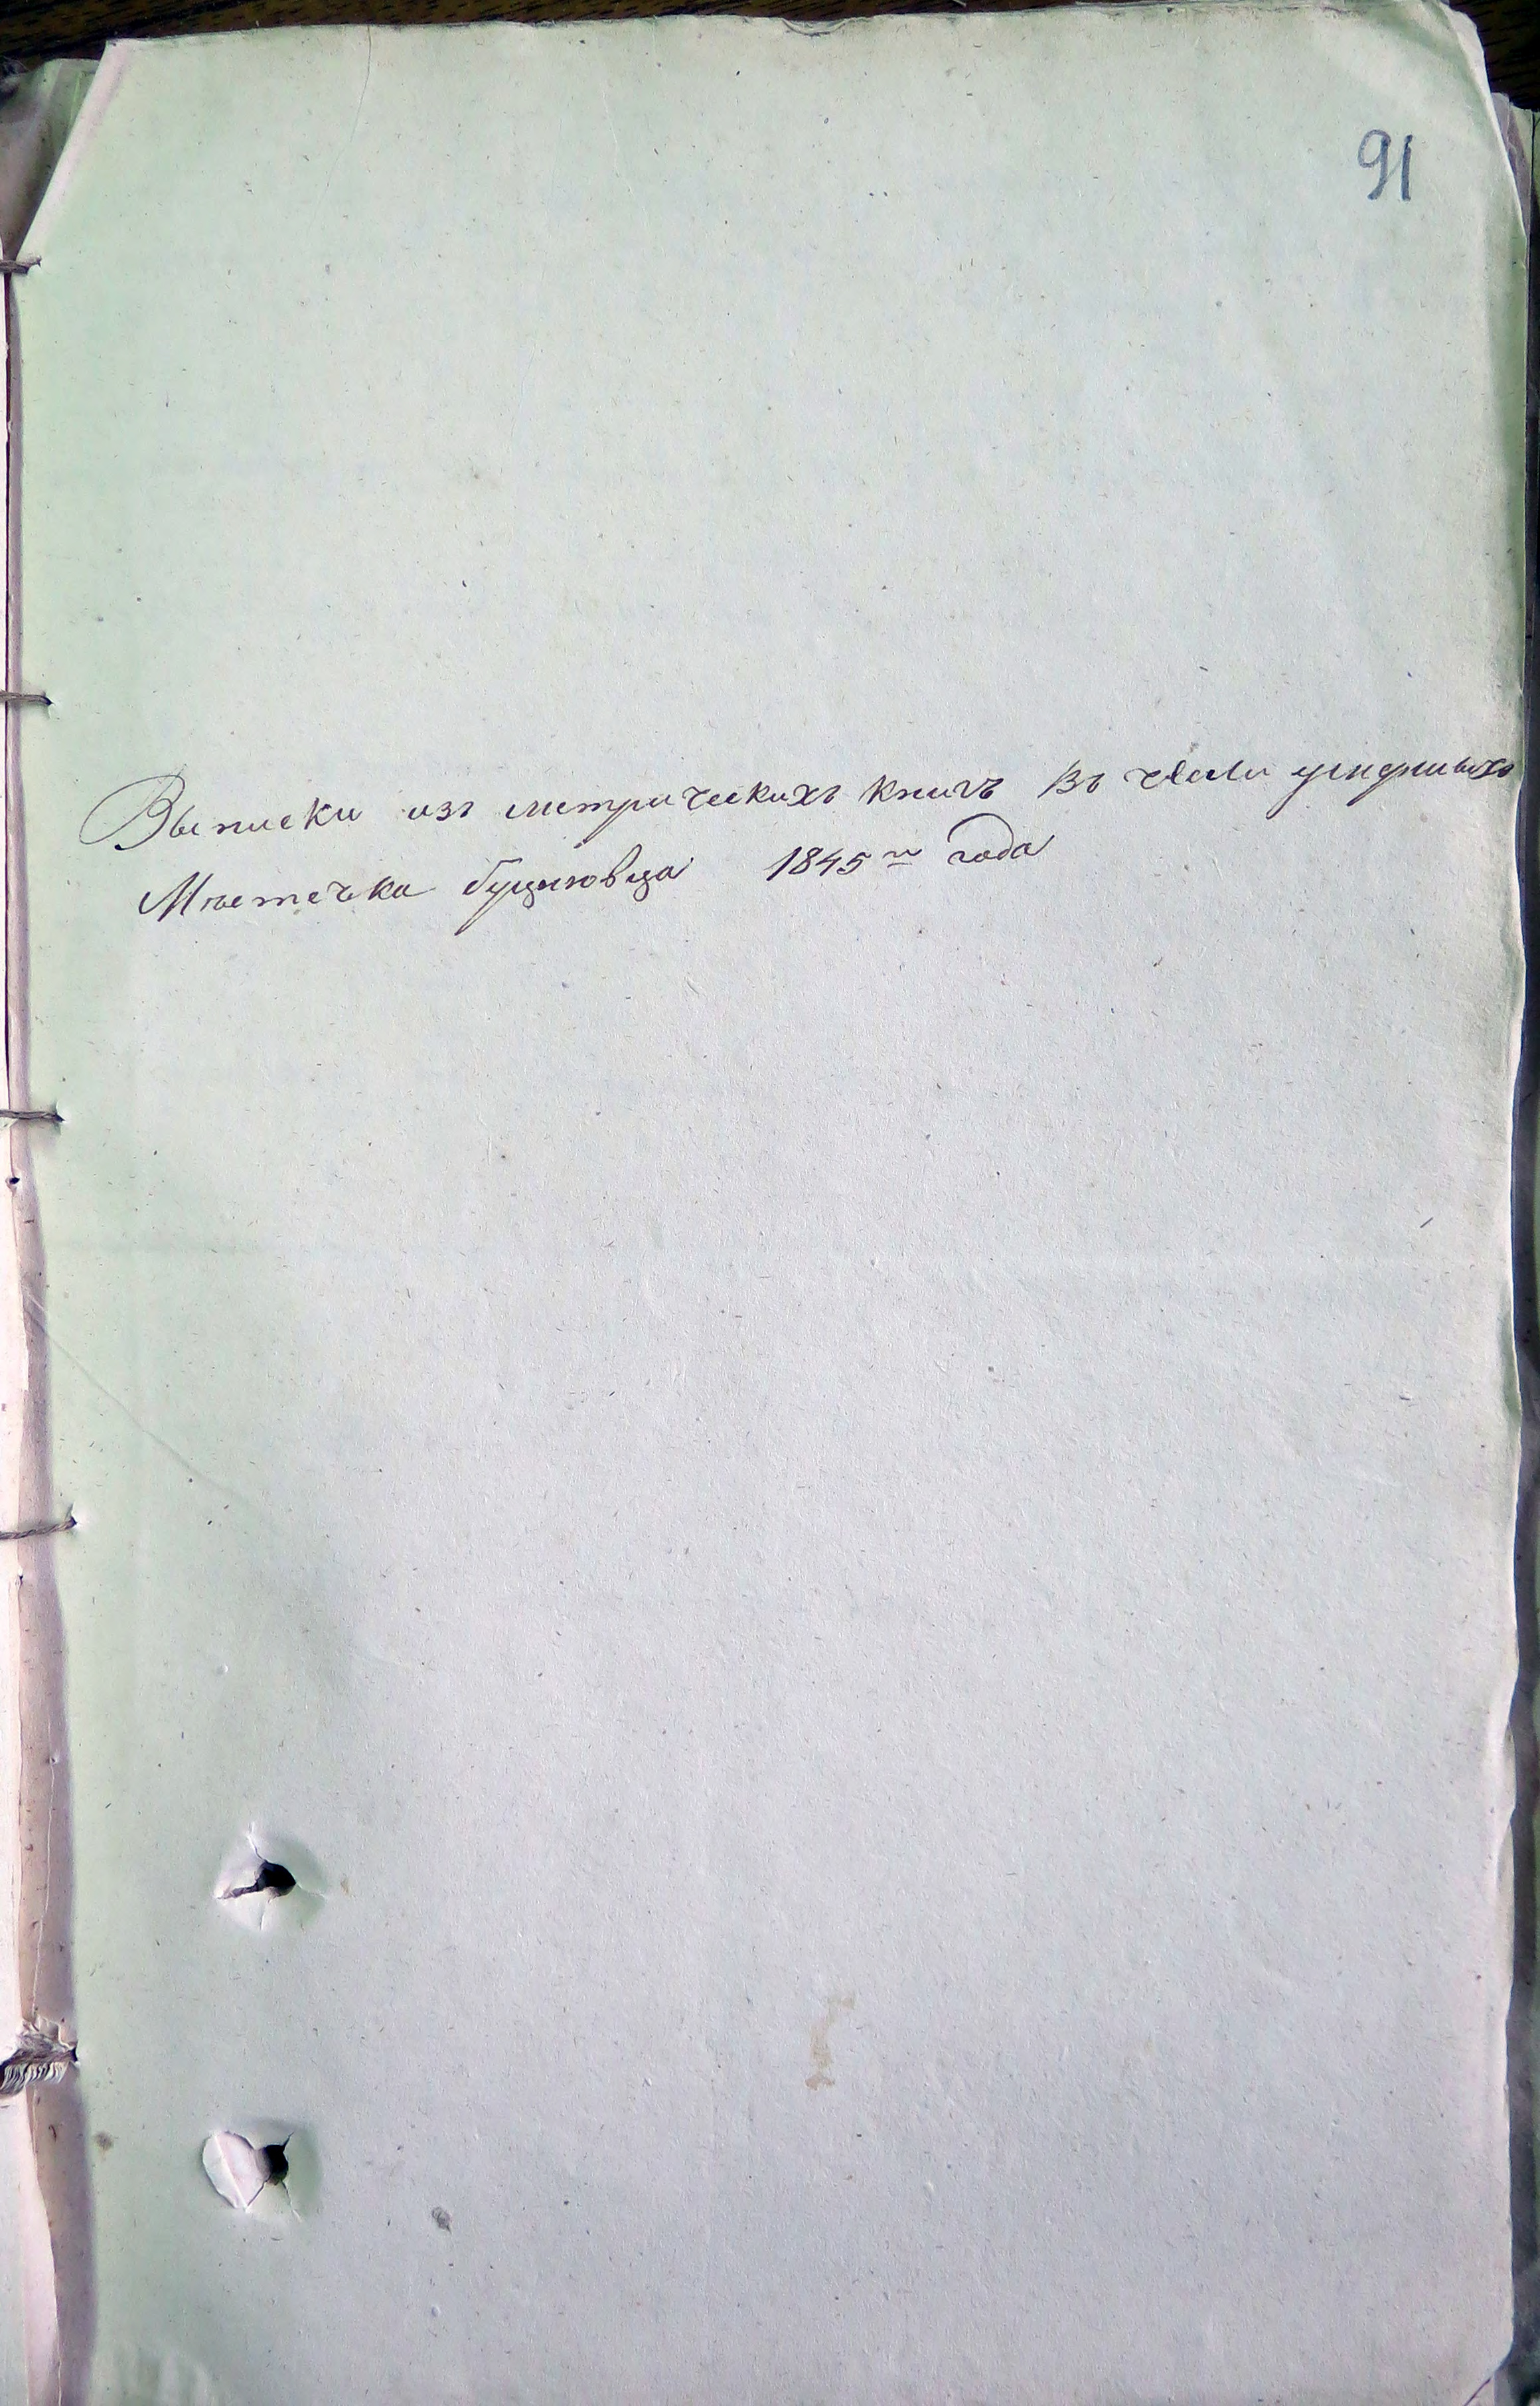 91
Выписки изъ метрическихъ книгъ Въ числи умершыхъ
Мѣстечка 1845 го года